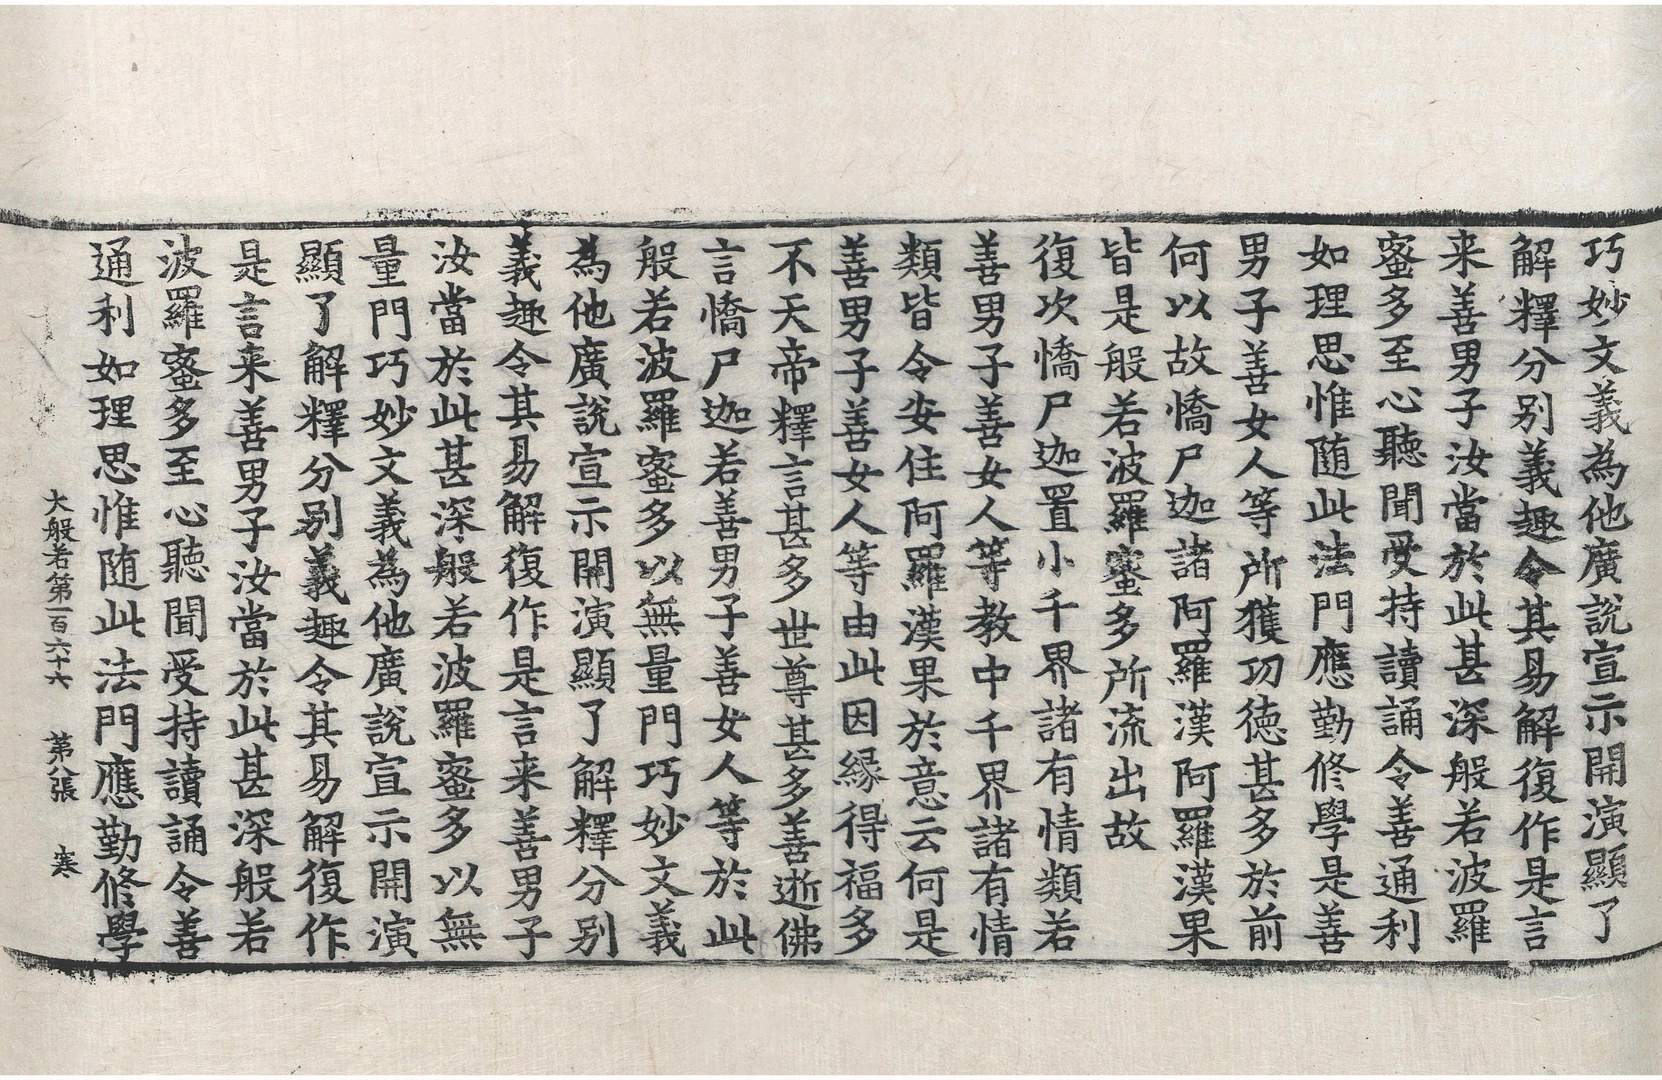 巧妙文義為他廣說宣示開演顯了
解釋分別義趣令其易解復作是言
来善男子汝當於此甚深般若波羅
蜜多至心聽聞受持讀誦令善通利
如理思惟随此法門應勤修學是善
男子善女人等所獲功德甚多於前
何以故憍尸迦諸阿羅漢阿羅漢果
皆是般若波羅蜜多所流出故
復次憍尸迦置小千界諸有情類若
善男子善女人等教中千界諸有情
類皆令安住阿羅漢果於意云何是
善男子善女人等由此因緣得福多
不天帝釋言甚多世尊甚多善逝佛
言憍尸迦若善男子善女人等於此
般若波羅蜜多以無量門巧妙文義
為他廣說宣示開演顯了解釋分别
義趣令其易解復作是言来善男子
汝當於此甚深般若波羅蜜多以無
量門巧妙文義為他廣說宣示開演
顯了解釋分别義趣令其易解復作
是言来善男子汝當於此甚深般若
波羅蜜多至心聽聞受持讀誦令善
通利如理思惟随此法門應勤修學
大般若第一百六十六 第八張 寒